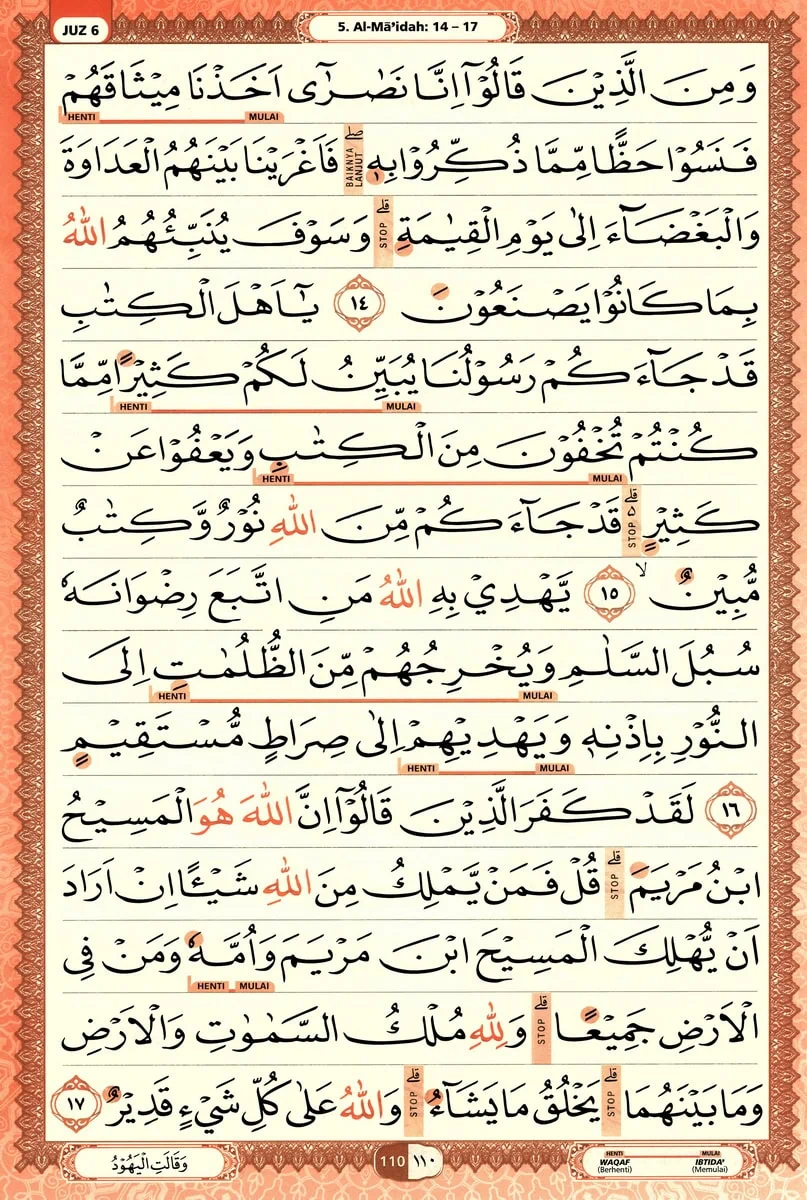 JUZ 6
5. Al-Mā’idah: 14 – 17
وَمِنَ الَّذِيْنَ قَالُوْٓا اِنَّا نَصٰرٰٓى اَخَذْنَا مِيْثَاقَهُمْ
HENTI MULAI
فَنَسُوْا حَظًّا مِّمَّا ذُكِّرُوْا بِهٖۖ فَاَغْرَيْنَا بَيْنَهُمُ الْعَدَاوَةَ
BAIKNYA LANJUT
وَالْبَغْضَاۤءَ اِلٰى يَوْمِ الْقِيٰمَةِۗ وَسَوْفَ يُنَبِّئُهُمُ اللّٰهُ
STOP
بِمَا كَانُوْا يَصْنَعُوْنَ ١٤ يٰٓاَهْلَ الْكِتٰبِ
قَدْ جَاۤءَكُمْ رَسُوْلُنَا يُبَيِّنُ لَكُمْ كَثِيْرًا مِّمَّا
HENTI MULAI
كُنْتُمْ تُخْفُوْنَ مِنَ الْكِتٰبِ وَيَعْفُوْا عَنْ
HENTI MULAI
كَثِيْرٍۗ قَدْ جَاۤءَكُمْ مِّنَ اللّٰهِ نُوْرٌ وَّكِتٰبٌ
STOP
مُّبِيْنٌۙ ١٥ يَّهْدِيْ بِهِ اللّٰهُ مَنِ اتَّبَعَ رِضْوَانَهٗ
سُبُلَ السَّلٰمِ وَيُخْرِجُهُمْ مِّنَ الظُّلُمٰتِ اِلَى
HENTI MULAI
النُّوْرِ بِاِذْنِهٖ وَيَهْدِيْهِمْ اِلٰى صِرَاطٍ مُّسْتَقِيْمٍ
HENTI MULAI
١٦ لَقَدْ كَفَرَ الَّذِيْنَ قَالُوْٓا اِنَّ اللّٰهَ هُوَ الْمَسِيْحُ
ابْنُ مَرْيَمَۗ قُلْ فَمَنْ يَّمْلِكُ مِنَ اللّٰهِ شَيْـًٔا اِنْ اَرَادَ
STOP
اَنْ يُّهْلِكَ الْمَسِيْحَ ابْنَ مَرْيَمَ وَاُمَّهٗ وَمَنْ فِى
HENTI MULAI
الْاَرْضِ جَمِيْعًاۗ وَلِلّٰهِ مُلْكُ السَّمٰوٰتِ وَالْاَرْضِ
STOP
وَمَا بَيْنَهُمَاۗ يَخْلُقُ مَا يَشَاۤءُۗ وَاللّٰهُ عَلٰى كُلِّ شَيْءٍ قَدِيْرٌ ١٧
STOP STOP
وَقَالَتِ الْيَهُوْدُ
110 ١١٠
HENTI MULAI
WAQAF IBTIDA'
(Berhenti) (Memulai)